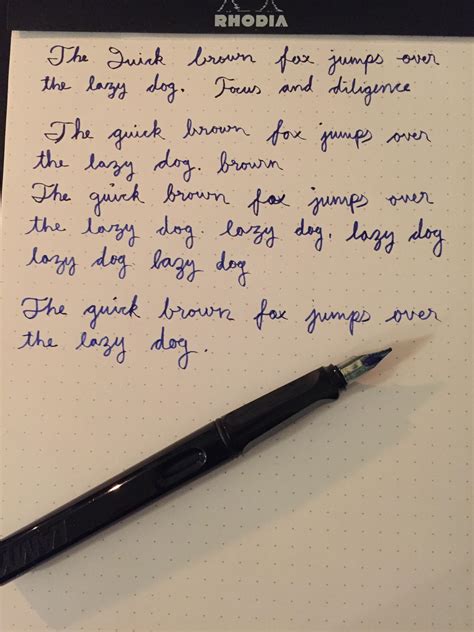 RHODIA
The Quick brown fox jumps over
the lazy dog. Focus and diligence
The quick brown fox jumps over
the lazy dog. brown
The quick brown fox jumps over
the lazy dog. lazy dog. lazy dog
lazy dog lazy dog
The quick brown fox jumps over
the lazy dog.
LAMY